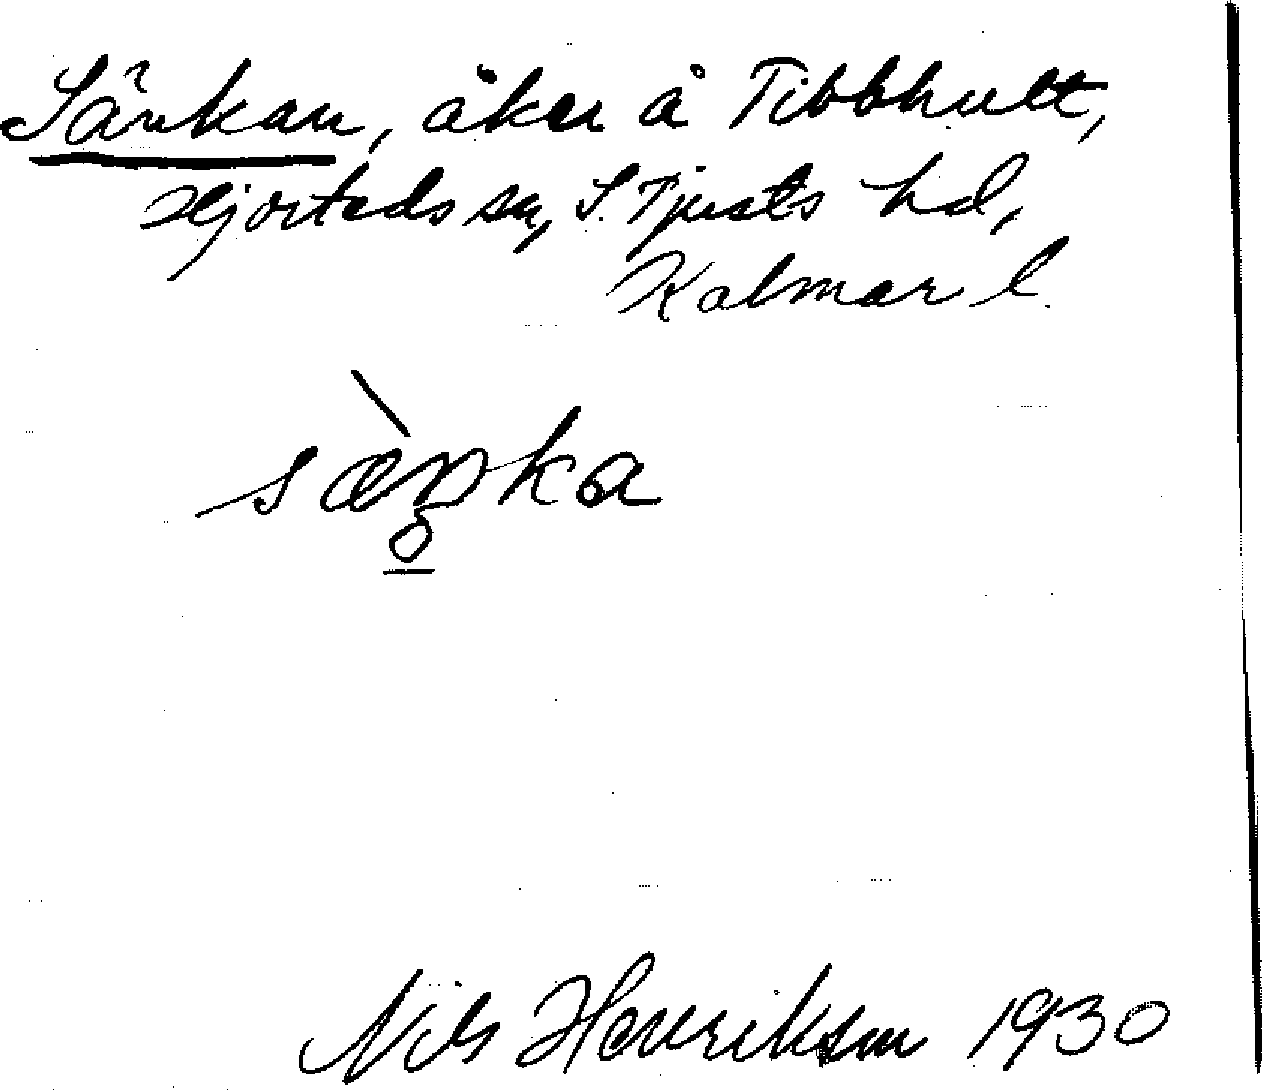 Sänkan, åker å Tibbhult,
Hjorteds sn, S. Tjusts hd,
Kalmar l.
sæ̀ŋka
Nils Henrikson 1930